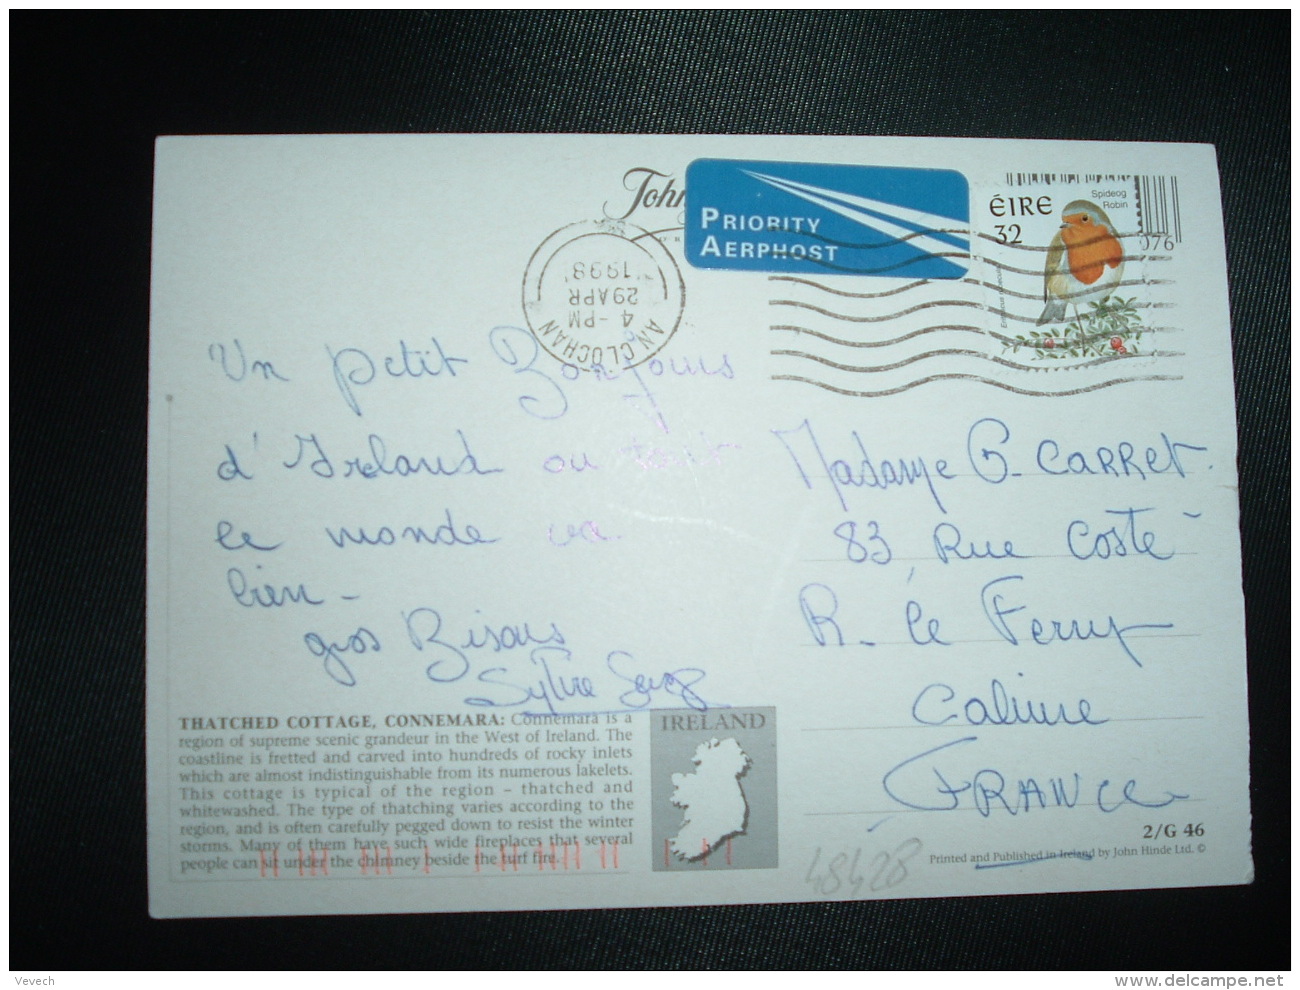 John
PRIORITY
AERPHOST
ÉIRE
32
Spideog
Robin
076
AN CLOCHAN
4-PM
29 APR
1998
Un petit Bonjours
d'Irland ou tout
le monde va
bien -
gros Bisous
Sylvie
Madame G. CARRET.
83, Rue Coste
R. le Ferry
Caluire
FRANCE
THATCHED COTTAGE, CONNEMARA: Connemara is a
region of supreme scenic grandeur in the West of Ireland. The
coastline is fretted and carved into hundreds of rocky inlets
which are almost indistinguishable from its numerous lakelets.
This cottage is typical of the region – thatched and
whitewashed. The type of thatching varies according to the
region, and is often carefully pegged down to resist the winter
storms. Many of them have such wide fireplaces that several
people can sit under the chimney beside the turf fire.
IRELAND
2/G 46
Printed and Published in Ireland by John Hinde Ltd. ©
48428
Vevech
www.delcampe.net